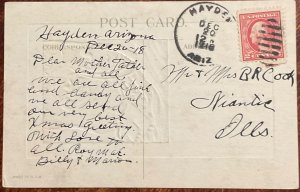 POST CARD
Hayden Arizona
Dec 20-18
Dear Mother Father
and all
We are all fine
and dandy and
we all send
our very best
Xmas Greeting.
With Love to
all. Roy Mae.
Billy & Marion.
HAYDEN
DEC
20
1918
ARIZ.
Mr & Mrs B R Cook
Niantic
Ills.